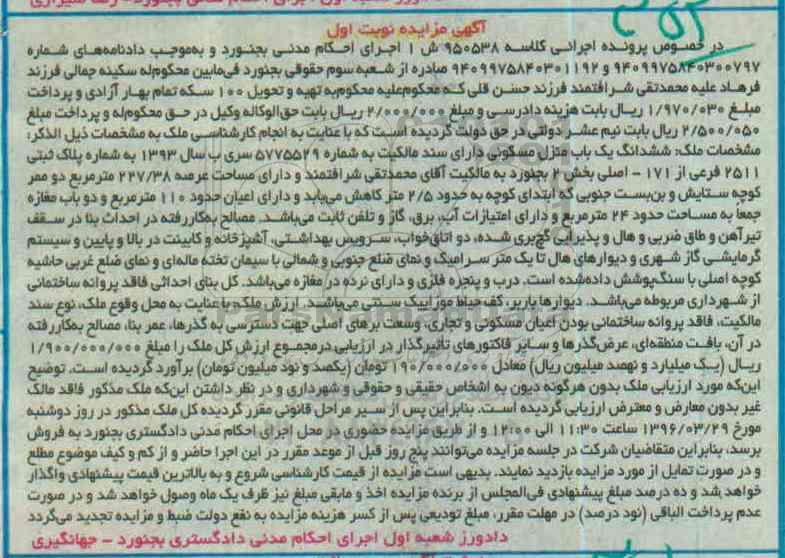 آگهی مزایده نوبت اول
در خصوص پرونده اجرائی کلاسه ۹۵۰۵۳۸ ش ۱ اجرای احکام مدنی بجنورد و به‌موجب دادنامه‌های شماره
۹۴۰۹۹۷۵۸۴۰۳۰۰۷۹۷ و ۹۴۰۹۹۷۵۸۴۰۳۰۱۱۹۲ صادره از شعبه سوم حقوقی بجنورد فی‌مابین محکوم‌له سکینه جمالی فرزند
فرهاد علیه محمدتقی شرافتمند فرزند حسن قلی که محکوم‌علیه محکوم‌به تهیه و تحویل ۱۰۰ سکه تمام بهار آزادی و پرداخت
مبلغ ۱/۹۷۰/۰۳۰ ریال بابت هزینه دادرسی و مبلغ ۲/۰۰۰/۰۰۰ ریال بابت حق‌الوکاله وکیل در حق محکوم‌له و پرداخت مبلغ
۲/۵۰۰/۰۵۰ ریال بابت نیم عشر دولتی در حق دولت گردیده است که با عنایت به انجام کارشناسی ملک به مشخصات ذیل الذکر:
مشخصات ملک: ششدانگ یک باب منزل مسکونی دارای سند مالکیت به شماره ۵۷۷۵۵۲۹ سری ب سال ۱۳۹۳ به شماره پلاک ثبتی
۲۵۱۱ فرعی از ۱۷۱ - اصلی بخش ۲ بجنورد به مالکیت آقای محمدتقی شرافتمند و دارای مساحت عرصه ۲۲۷/۳۸ مترمربع دو ممر
کوچه ستایش و بن‌بست جنوبی که ابتدای کوچه به حدود ۲/۵ متر کاهش می‌یابد و دارای اعیان حدود ۱۱۰ مترمربع و دو باب مغازه
جمعاً به مساحت حدود ۲۴ مترمربع و دارای امتیازات آب، برق، گاز و تلفن ثابت می‌باشد. مصالح به‌کاررفته در احداث بنا در سقف
تیرآهن و طاق ضربی و هال و پذیرایی گچ‌بری شده، دو اتاق‌خواب، سرویس بهداشتی، آشپزخانه و کابینت در بالا و پایین و سیستم
گرمایشی گاز شهری و دیوارهای هال تا یک متر سرامیک و نمای ضلع جنوبی و شمالی با سیمان تخته ماله‌ای و نمای ضلع غربی حاشیه
کوچه اصلی با سنگ‌پوشش داده‌شده است. درب و پنجره فلزی و دارای نرده در مغازه می‌باشد. کل بنای احداثی فاقد پروانه ساختمانی
از شهرداری مربوطه می‌باشد. دیوارها باربر، کف حیاط موزاییک سنتی می‌باشد. ارزش ملک: با عنایت به محل وقوع ملک، نوع سند
مالکیت، فاقد پروانه ساختمانی بودن اعیان مسکونی و تجاری، وسعت برهای اصلی جهت دسترسی به گذرها، عمر بنا، مصالح به‌کاررفته
در آن، بافت منطقه‌ای، عرض‌گذرها و سایر فاکتورهای تأثیرگذار در ارزیابی درمجموع ارزش کل ملک را مبلغ ۱/۹۰۰/۰۰۰/۰۰۰
ریال (یک میلیارد و نهصد میلیون ریال) معادل ۱۹۰/۰۰۰/۰۰۰ تومان (یکصد و نود میلیون تومان) برآورد گردیده است. توضیح
این‌که مورد ارزیابی ملک بدون هرگونه دیون به اشخاص حقیقی و حقوقی و شهرداری و در نظر داشتن این‌که ملک مذکور فاقد مالک
غیر بدون معارض و معترض ارزیابی گردیده است. بنابراین پس از سیر مراحل قانونی مقرر گردیده کل ملک مذکور در روز دوشنبه
مورخ ۱۳۹۶/۰۳/۲۹ ساعت ۱۱:۳۰ الی ۱۲:۰۰ و از طریق مزایده حضوری در محل اجرای احکام مدنی دادگستری بجنورد به فروش
برسد، بنابراین متقاضیان شرکت در جلسه مزایده می‌توانند پنج روز قبل از موعد مقرر در این اجرا حاضر و از کم و کیف موضوع مطلع
و در صورت تمایل از مورد مزایده بازدید نمایند. بدیهی است مزایده از قیمت کارشناسی شروع و به بالاترین قیمت پیشنهادی واگذار
خواهد شد و ده درصد مبلغ پیشنهادی فی‌المجلس از برنده مزایده اخذ و مابقی مبلغ نیز ظرف یک ماه وصول خواهد شد و در صورت
عدم پرداخت الباقی (نود درصد) در مهلت مقرر، مبلغ تودیعی پس از کسر هزینه مزایده به نفع دولت ضبط و مزایده تجدید می‌گردد
دادورز شعبه اول اجرای احکام مدنی دادگستری بجنورد - جهانگیری